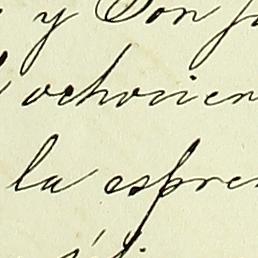 y Don
ochocien
la espre